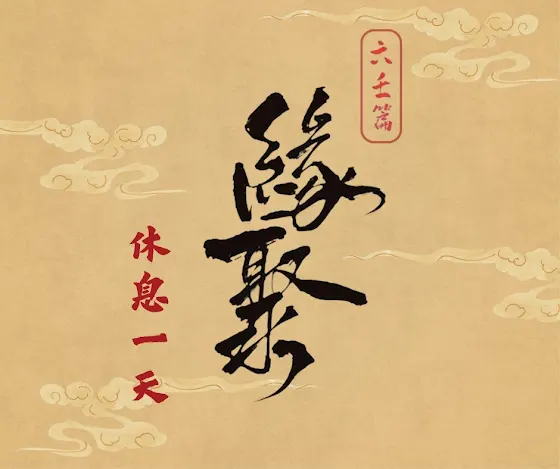 六壬篇
緣聚
休息一天